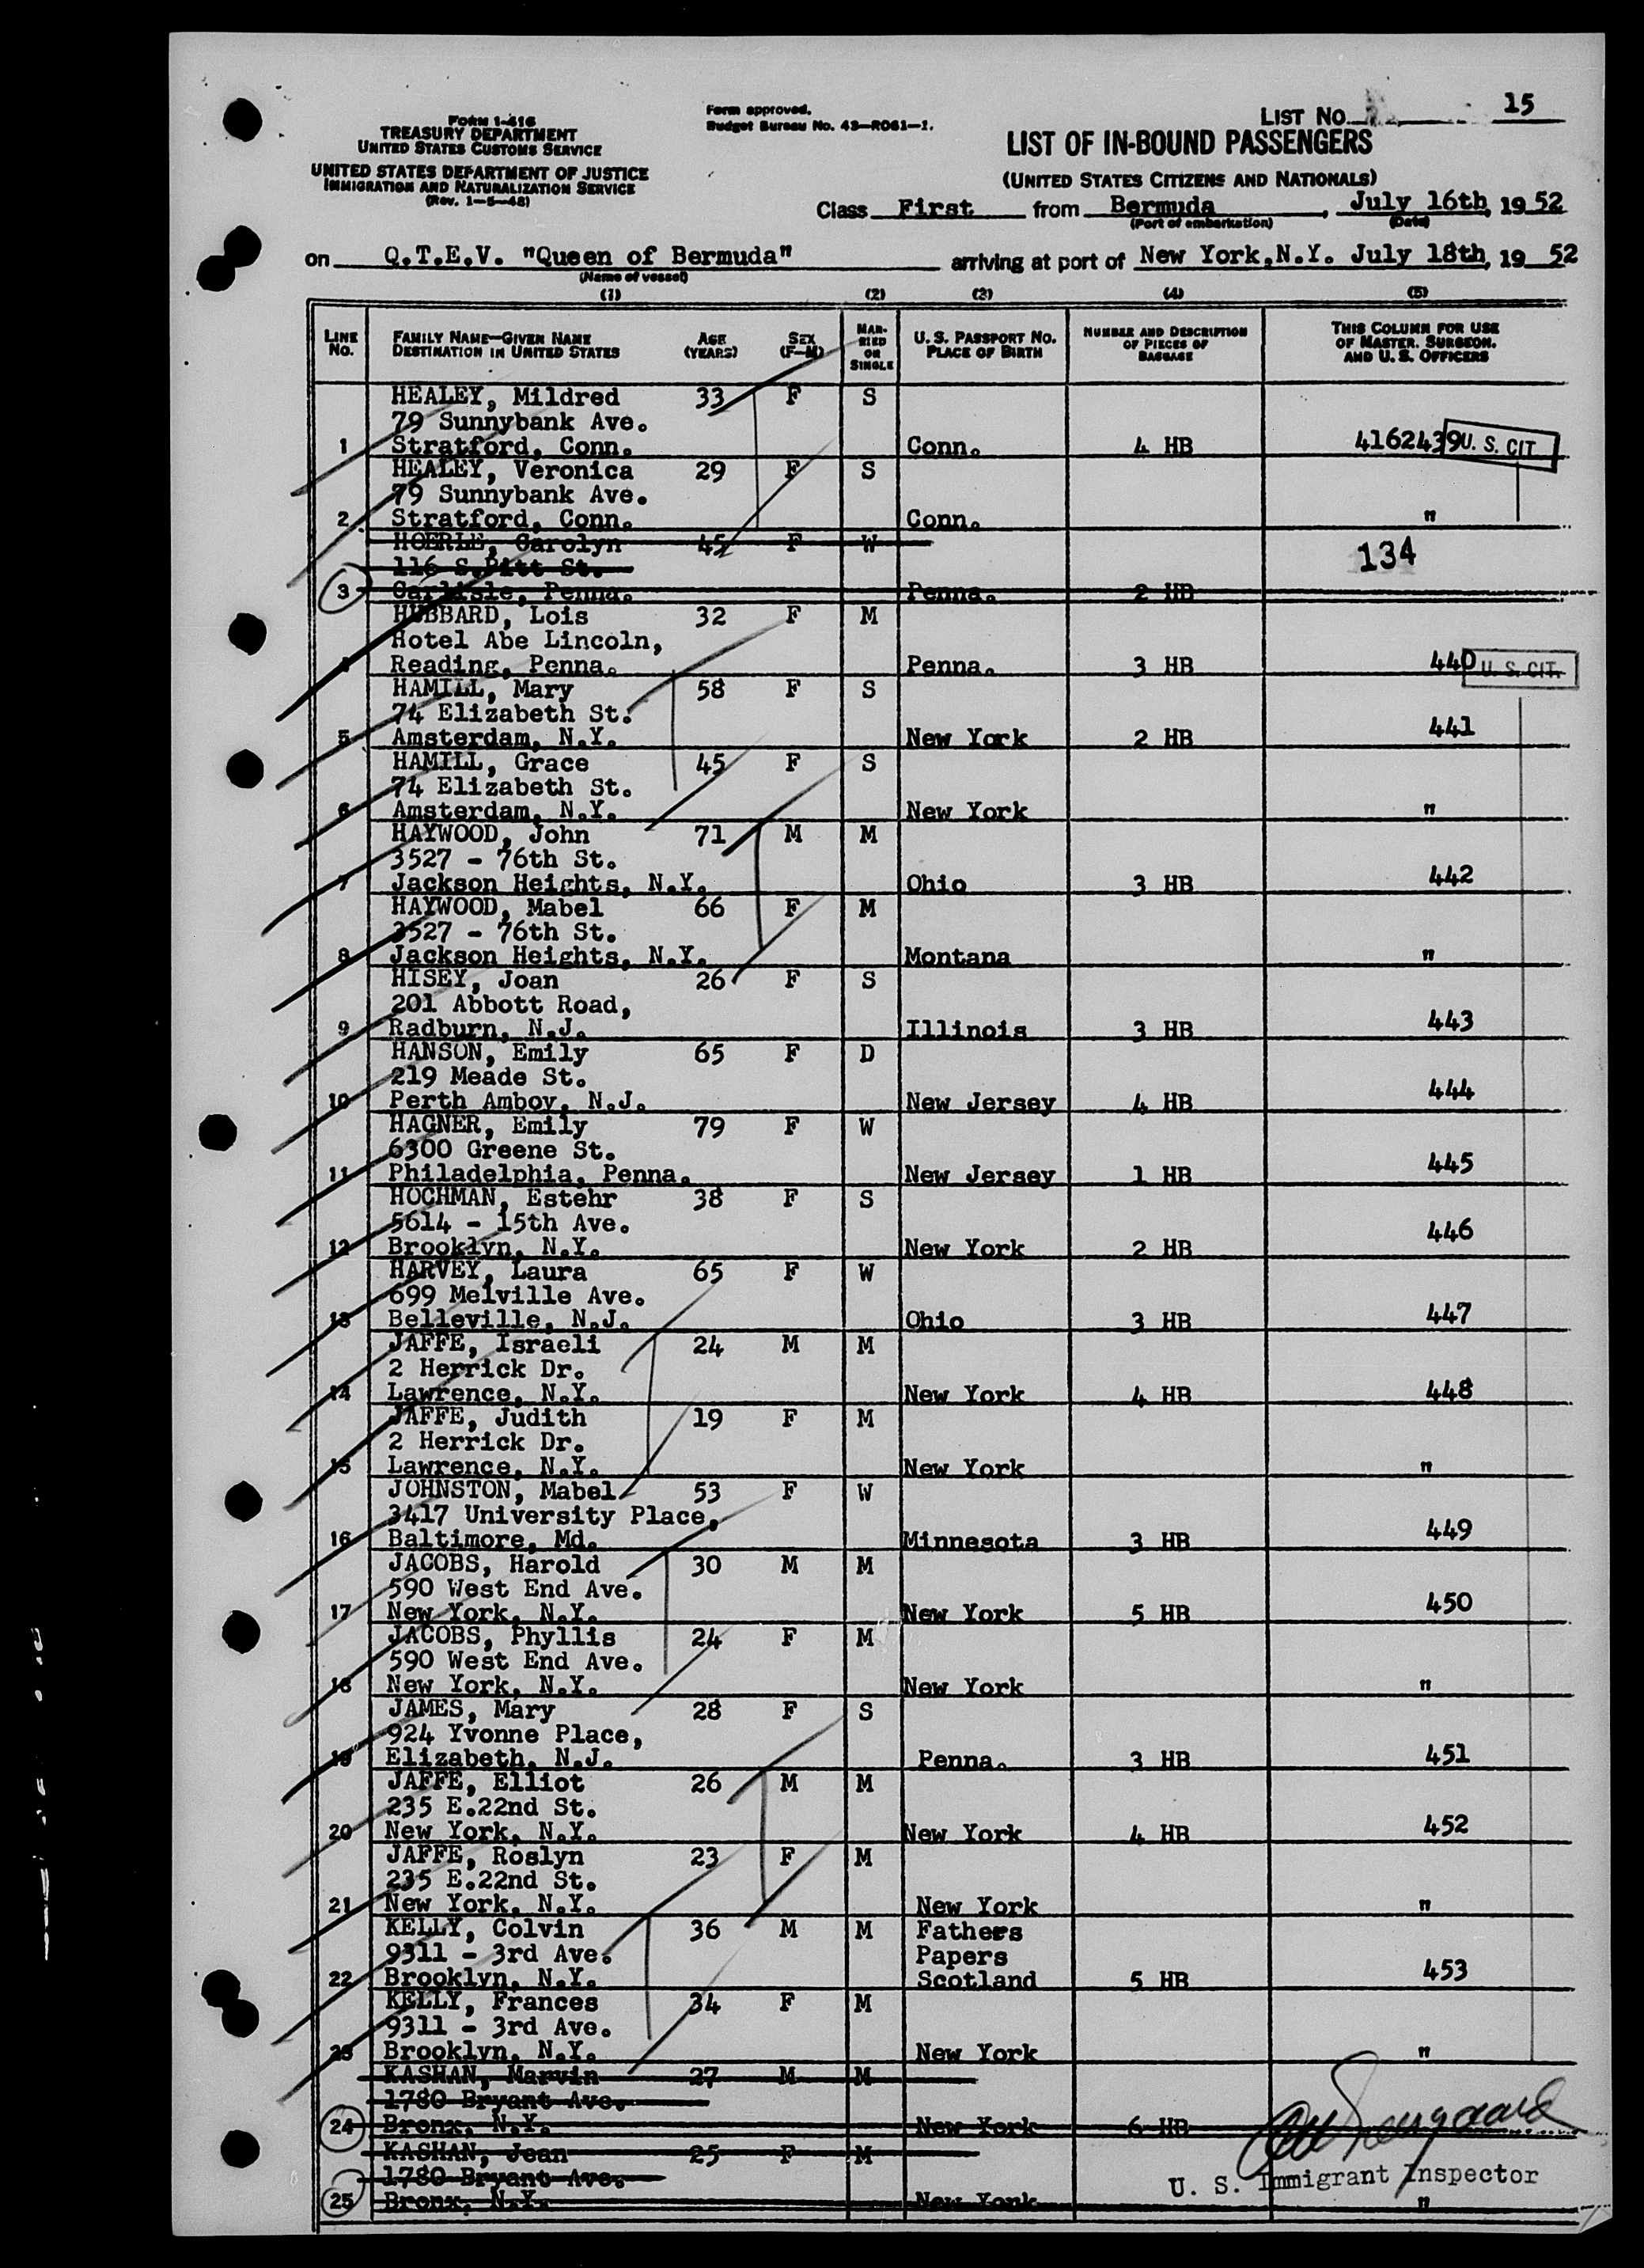 FORM I-416
TREASURY DEPARTMENT
UNITED STATES CUSTOMS SERVICE
UNITED STATES DEPARTMENT OF JUSTICE
IMMIGRATION AND NATURALIZATION SERVICE
(Rev. 1-5-48)
Form approved.
Budget Bureau No. 43-R061-1.
LIST NO. 15
LIST OF IN-BOUND PASSENGERS
(UNITED STATES CITIZENS AND NATIONALS)
Class First from Bermuda, July 16th, 1952
(Port of embarkation) (Date)
on Q.T.E.V. "Queen of Bermuda" arriving at port of New York,N.Y. July 18th, 1952
(Name of vessel)
(1) (2) (3) (4) (5)
LINE NO. FAMILY NAME—GIVEN NAME DESTINATION IN UNITED STATES AGE (YEARS) SEX (F-M) MARRIED OR SINGLE U. S. PASSPORT NO. PLACE OF BIRTH NUMBER AND DESCRIPTION OF PIECES OF BAGGAGE THIS COLUMN FOR USE OF MASTER, SURGEON, AND U. S. OFFICERS
HEALEY, Mildred 33 F S
79 Sunnybank Ave.
1 Stratford, Conn. Conn. 4 HB 4162439 U. S. CIT
HEALEY, Veronica 29 F S
79 Sunnybank Ave.
2 Stratford, Conn. Conn. "
HOERLE, Carolyn 45 F W
116 S.Pitt St. 134
3 Carlisle, Penna. Penna. 2 HB
HUBBARD, Lois 32 F M
Hotel Abe Lincoln,
4 Reading, Penna. Penna. 3 HB 440 U. S. CIT.
HAMILL, Mary 58 F S
74 Elizabeth St.
5 Amsterdam, N.Y. New York 2 HB 441
HAMILL, Grace 45 F S
74 Elizabeth St.
6 Amsterdam, N.Y. New York "
HAYWOOD, John 71 M M
3527 - 76th St.
7 Jackson Heights, N.Y. Ohio 3 HB 442
HAYWOOD, Mabel 66 F M
3527 - 76th St.
8 Jackson Heights, N.Y. Montana "
HISEY, Joan 26 F S
201 Abbott Road,
9 Radburn, N.J. Illinois 3 HB 443
HANSON, Emily 65 F D
219 Meade St.
10 Perth Amboy, N.J. New Jersey 4 HB 444
HAGNER, Emily 79 F W
6300 Greene St.
11 Philadelphia, Penna. New Jersey 1 HB 445
HOCHMAN, Estehr 38 F S
5614 - 15th Ave.
12 Brooklyn, N.Y. New York 2 HB 446
HARVEY, Laura 65 F W
699 Melville Ave.
13 Belleville, N.J. Ohio 3 HB 447
JAFFE, Israeli 24 M M
2 Herrick Dr.
14 Lawrence, N.Y. New York 4 HB 448
JAFFE, Judith 19 F M
2 Herrick Dr.
15 Lawrence, N.Y. New York "
JOHNSTON, Mabel 53 F W
3417 University Place,
16 Baltimore, Md. Minnesota 3 HB 449
JACOBS, Harold 30 M M
590 West End Ave.
17 New York, N.Y. New York 5 HB 450
JACOBS, Phyllis 24 F M
590 West End Ave.
18 New York, N.Y. New York "
JAMES, Mary 28 F S
924 Yvonne Place,
19 Elizabeth, N.J. Penna. 3 HB 451
JAFFE, Elliot 26 M M
235 E.22nd St.
20 New York, N.Y. New York 4 HB 452
JAFFE, Roslyn 23 F M
235 E.22nd St.
21 New York, N.Y. New York "
KELLY, Colvin 36 M M Fathers
9311 - 3rd Ave. Papers
22 Brooklyn, N.Y. Scotland 5 HB 453
KELLY, Frances 34 F M
9311 - 3rd Ave.
23 Brooklyn, N.Y. New York "
KASHAN, Marvin 27 M M
1780 Bryant Ave.
24 Bronx, N.Y. New York 6 HB
KASHAN, Jean 25 F M
1780 Bryant Ave. U. S. Immigrant Inspector
25 Bronx, N.Y. New York "